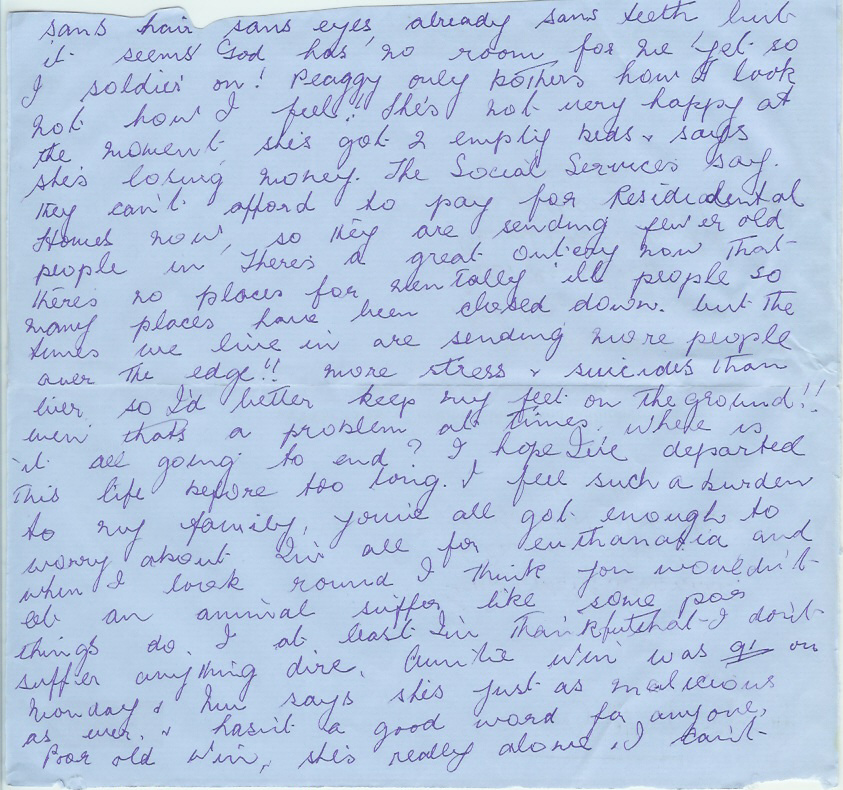 sans hair sans eyes, already sans teeth but
it seems God has no room for me yet so
I soldier on! Peaggy only bothers how I look
not how I feel!! She's not very happy at
the moment she's got 2 empty beds & says
she's losing money. The Social Services say.
they can't afford to pay for Residiadental
Homes now, so they are sending fewer old
people in. There's a great outcry now that
there's no places for mentally ill people so
many places have been closed down. but the
times we live in are sending more people
over the edge!! more stress & suicides than
ever so I'd better keep my feet on the ground!!
even thats a problem at times. Where is
it all going to end? I hope I've departed
this life before too long. I feel such a burden
to my family, you've all got enough to
worry about. I'm all for euthanasia and
when I look round I think you wouldn't
let an animal suffer like some poor
things do. I at least I'm thankful that I don't
suffer anything dire. Auntie Win was 91 on
Monday & says she's just as malicious
as ever. & hasn't a good word for anyone,
Poor old Win, she's really alone, I can't